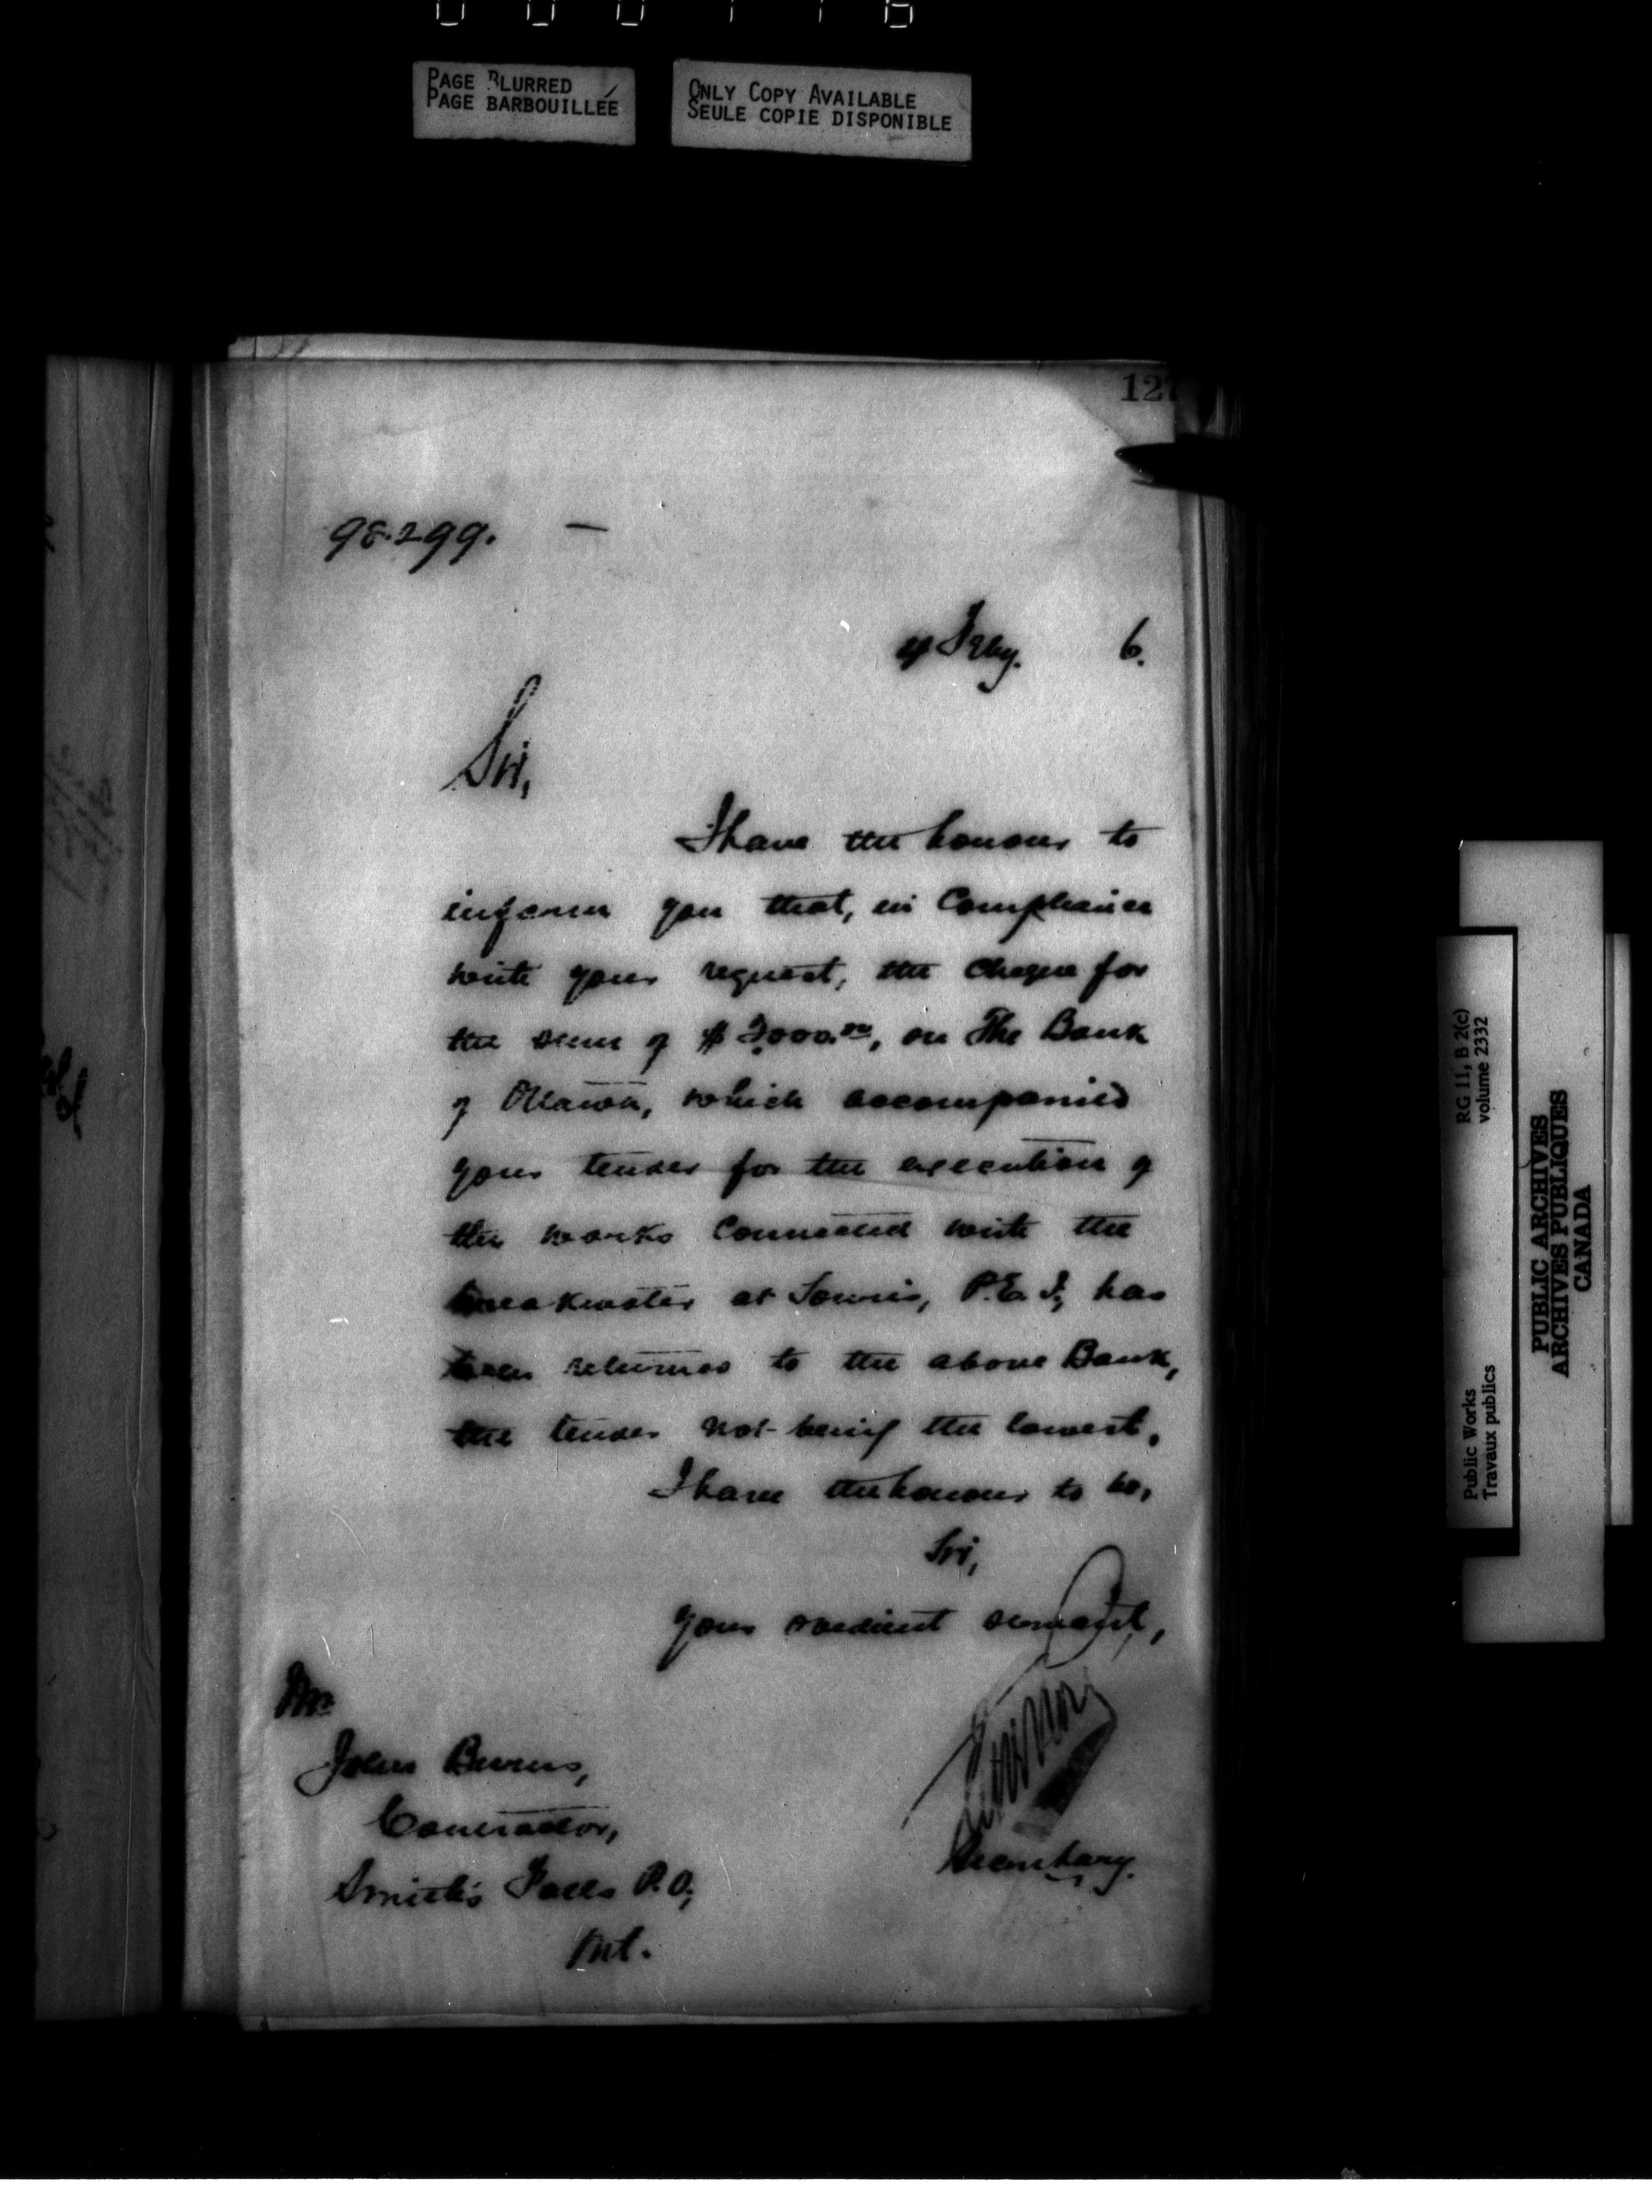 PAGE BLURRED
PAGE BARBOUILLÉE
ONLY COPY AVAILABLE
SEULE COPIE DISPONIBLE
127
98.299. —
4 Feby. 6.
Sir,
I have the honour to
inform you that, in Compliance
with your request, the cheque for
the sum of $ 2,000.00, on The Bank
of Ottawa, which accompanied
your tender for the execution of
the works Connected with the
breakwater at Souris, P.E.I., has
been returned to the above Bank,
the tender not being the lowest.
I have the honour to be,
Sir,
Your obedient servant,
Secretary.
Mr
John Burns,
Contractor,
Smith's Falls P.O.,
Ont.
Public Works RG 11, B 2(c)
Travaux publics volume 2332
PUBLIC ARCHIVES
ARCHIVES PUBLIQUES
CANADA